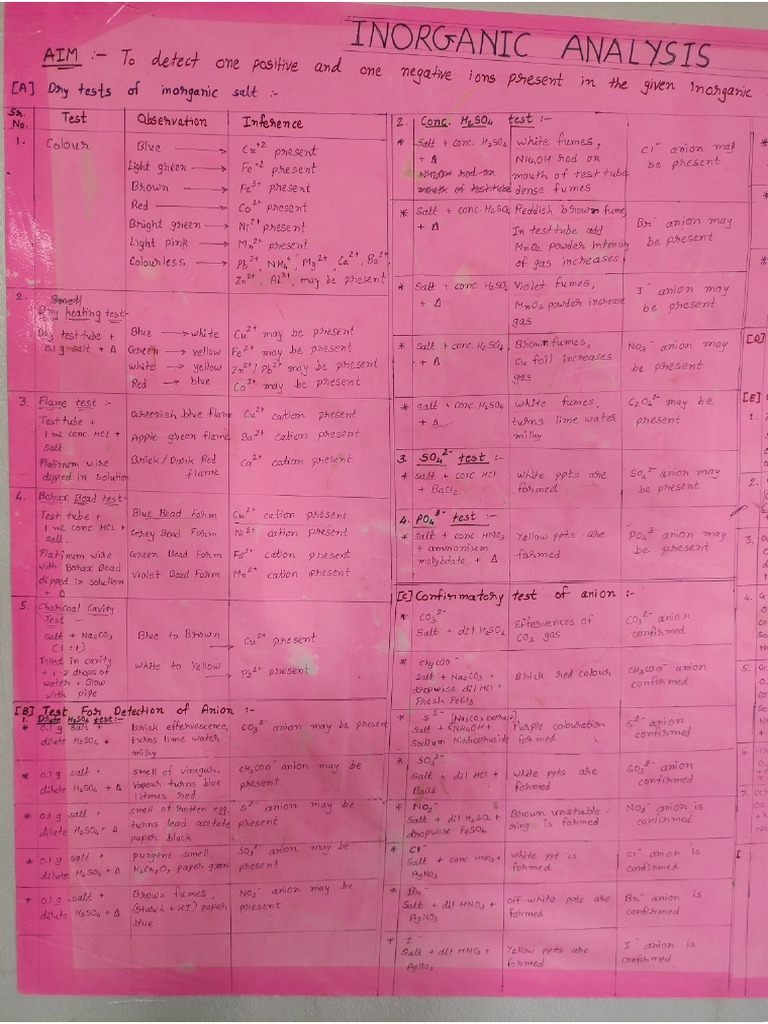 INORGANIC ANALYSIS
AIM :- To detect one positive and one negative ions present in the given Inorganic
[A] Dry tests of inorganic salt :-
Sr. No. Test Observation Inference
1. Colour Blue → Cu+2 present
Light green → Fe+2 present
Brown → Fe3+ present
Red → Co2+ present
Bright green → Ni2+ present
Light pink → Mn2+ present
Colourless → Pb2+, NH4+, Mg2+, Ca2+, Ba2+,
Zn2+, Al3+, may be present
2. Smell
Dry heating test-
Dry test tube + Blue → white Cu2+ may be present
0.1 g salt + Δ Green → yellow Fe2+ may be present
white → yellow Zn2+/Pb2+ may be present
Red → blue Co2+ may be present
3. Flame test :-
Test tube + Greenish blue flame Cu2+ cation present
1 mL conc. HCl + Apple green flame Ba2+ cation present
salt
Platinum wire Brick/Dark Red Ca2+ cation present
dipped in solution flame
4. Borax Bead test:-
Test tube + Blue Bead Form Cu2+ cation present
1 mL conc. HCl + Grey Bead Form Ni2+ cation present
salt.
Platinum wire Green Bead Form Fe3+ cation present
with Borax Bead
dipped in solution Violet Bead Form Mn2+ cation present
+ Δ
5. Charcoal Cavity
Test :-
Salt + Na2CO3 Blue to Brown → Cu2+ present
(1:1)
Filled in cavity White to Yellow → Pb2+ present
+ 1-2 drops of
water + Slow
with pipe
[B] Test For Detection of Anion :-
1. Dilute H2SO4 test:-
* 0.1 g salt + brisk effervescence, CO3 2- anion may be present
dilute H2SO4 turns lime water
milky
* 0.1 g salt + smell of vinegar, CH3COO- anion may be
dilute H2SO4 + Δ Vapour turns blue present
litmus red
* 0.1 g salt + smell of rotten egg, S2- anion may be
dilute H2SO4 + Δ turns lead acetate present
paper black
* 0.1 g salt + pungent smell, SO3 2- anion may be
dilute H2SO4 + Δ H2Cr2O7 paper green present
* 0.1 g salt + Brown fumes, NO2- anion may be
dilute H2SO4 + Δ (Starch + KI) paper present
blue
2. Conc. H2SO4 test :-
* Salt + conc. H2SO4 White fumes, Cl- anion may
+ Δ NH4OH rod on be present
NH4OH rod on mouth of test tube
mouth of test tube dense fumes
* Salt + conc. H2SO4 Reddish brown fume, Br- anion may
+ Δ In test tube add be present
MnO2 powder Intensity
of gas increases
* Salt + conc. H2SO4 Violet fumes, I- anion may
+ Δ MnO2 powder increase be present
gas
* Salt + conc. H2SO4 Brown fumes, NO3- anion may
+ Δ Cu foil increases be present
gas
* salt + conc. H2SO4 white fumes, C2O4 2- may be
+ Δ turns lime water present
milky
3. SO4 2- test :-
* salt + conc HCl White ppts are SO4 2- anion may
+ BaCl2 formed be present
4. PO4 3- test :-
* salt + conc. HNO3 Yellow ppts are PO4 3- anion may
+ ammonium formed be present
molybdate + Δ
[C] Confirmatory test of anion :-
* CO3 2- Effervences of CO3 2- anion
Salt + dil H2SO4 CO2 gas confirmed
* CH3COO-
Salt + Na2CO3 + Brick red colour CH3COO- anion
dropwise dil HCl + confirmed
Fresh FeCl3
* S2- (Na2CO3 extract)
Salt + NH4OH + Purple colouration S2- anion
Sodium Nitroprusside formed confirmed
* SO3 2-
Salt + dil HCl + White ppts are SO3 2- anion
BaCl2 formed confirmed
* NO2-
Salt + dil H2SO4 + Brown unstable NO2- anion is
dropwise FeSO4 ring is formed confirmed
* Cl-
Salt + conc HNO3 + White ppt is Cl- anion is
AgNO3 formed confirmed
* Br-
Salt + dil HNO3 + off-white ppts are Br- anion is
AgNO3 formed confirmed
* I-
Salt + dil HNO3 + Yellow ppts are I- anion is
AgNO3 formed confirmed
[D]
[E]
1.
2.
3.
4.
5.
6
7.